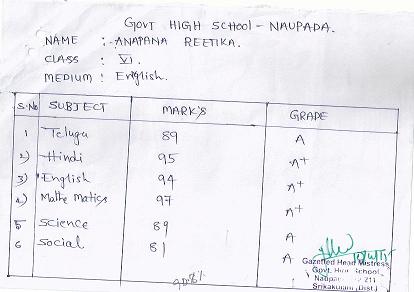 GOVT HIGH SCHOOL - NAUPADA.
NAME : ANAPANA REETIKA.
CLASS : VI.
MEDIUM : English.
S.No SUBJECT MARK'S GRADE
1 Telugu 89 A
2) Hindi 95 A+
3) English 94 A+
4) Mathe matics 97 A+
5 Science 89 A
6 Social 81 A
Gazetted Head Mistress
Govt. High School
Naupada 211
Srikakulam (Dist.)